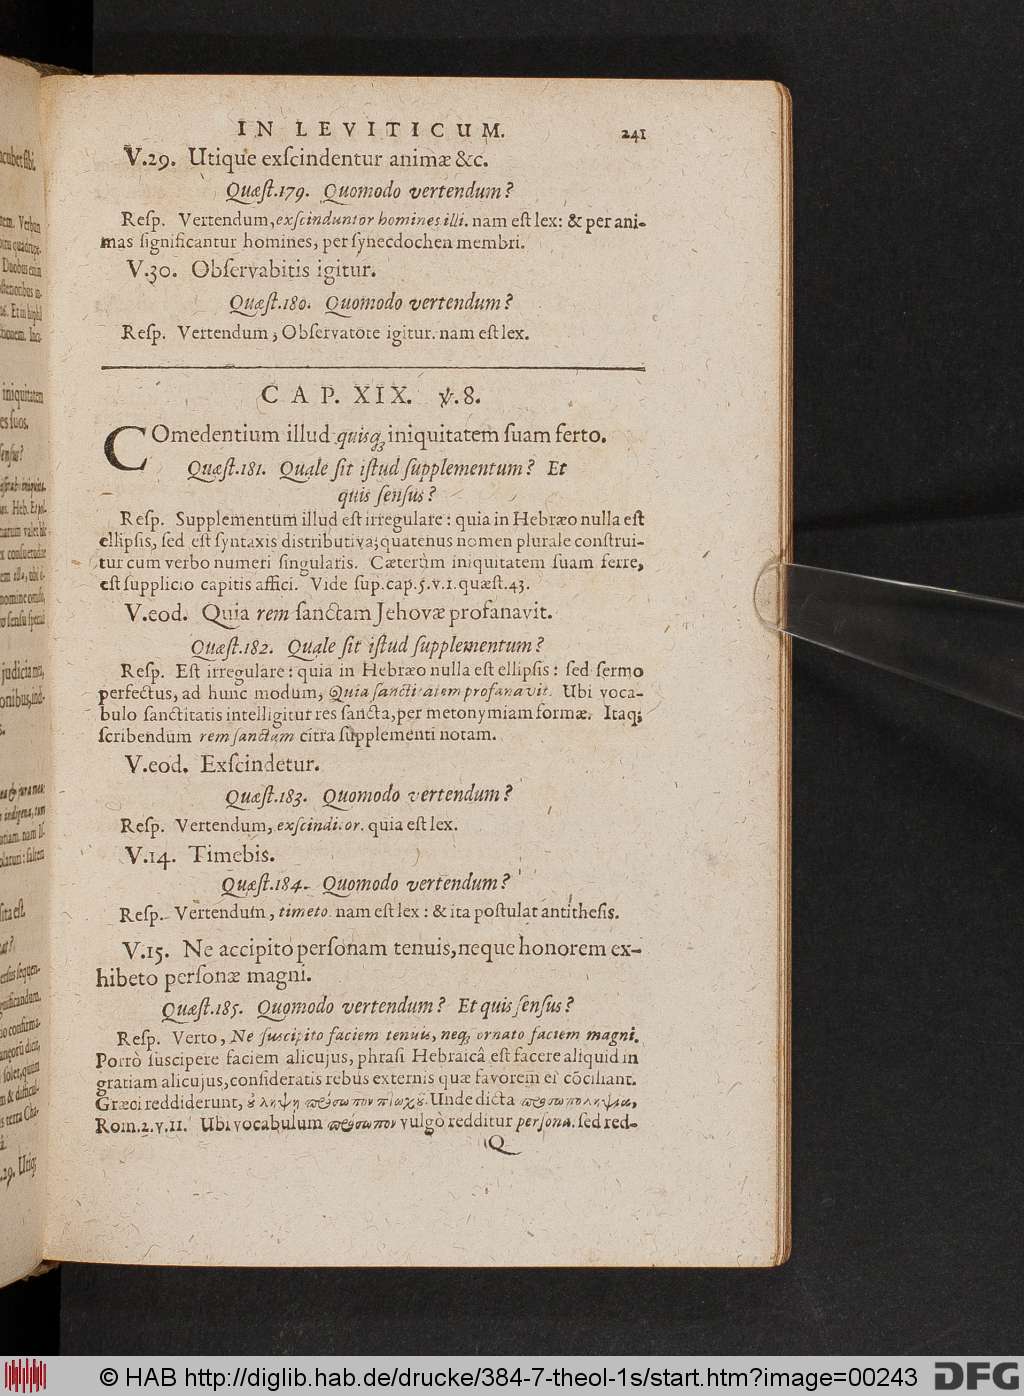 IN LEVITICUM. 241
V.29. Utique exſcindentur animæ &c.
Quæſt.179. Quomodo vertendum?
Reſp. Vertendum, exſcinduntor homines illi. nam eſt lex: & per ani-
mas ſignificantur homines, per ſynecdochen membri.
V.30. Obſervabitis igitur.
Quæſt.180. Quomodo vertendum?
Reſp. Vertendum, Obſervatote igitur. nam eſt lex.
CAP. XIX. ℣.8.
COmedentium illud quisq; iniquitatem ſuam ferto.
Quæſt.181. Quale ſit iſtud ſupplementum? Et
quis ſenſus?
Reſp. Supplementum illud eſt irregulare: quia in Hebræo nulla eſt
ellipſis, ſed eſt ſyntaxis diſtributiva; quatenus nomen plurale conſtrui-
tur cum verbo numeri ſingularis. Cæterùm iniquitatem ſuam ferre,
eſt ſupplicio capitis affici. Vide ſup. cap. 5. v. 1. quæſt. 43.
V.eod. Quia rem ſanctam Jehovæ profanavit.
Quæſt.182. Quale ſit iſtud ſupplementum?
Reſp. Eſt irregulare: quia in Hebræo nulla eſt ellipſis: ſed ſermo
perfectus, ad hunc modum, Quia ſanctitatem profanavit. Ubi voca-
bulo ſanctitatis intelligitur res ſancta, per metonymiam formæ. Itaq;
ſcribendum rem ſanctam citra ſupplementi notam.
V.eod. Exſcindetur.
Quæſt.183. Quomodo vertendum?
Reſp. Vertendum, exſcinditor. quia eſt lex.
V.14. Timebis.
Quæſt.184. Quomodo vertendum?
Reſp. Vertendum, timeto. nam eſt lex: & ita poſtulat antitheſis.
V.15. Ne accipito perſonam tenuis, neque honorem ex-
hibeto perſonæ magni.
Quæſt.185. Quomodo vertendum? Et quis ſenſus?
Reſp. Verto, Ne ſuſcipito faciem tenuis, neq; ornato faciem magni.
Porrò ſuſcipere faciem alicujus, phraſi Hebraicâ eſt facere aliquid in
gratiam alicujus, conſideratis rebus externis quæ favorem ei cōciliant.
Græci reddiderunt, ȣ̓ λήψῃ πρόσωπον πτωχȣ͂. Unde dicta προσωποληψία,
Rom. 2. v. 11. Ubi vocabulum πρόσωπον vulgò redditur perſona. ſed red-
Q
© HAB http://diglib.hab.de/drucke/384-7-theol-1s/start.htm?image=00243
DFG